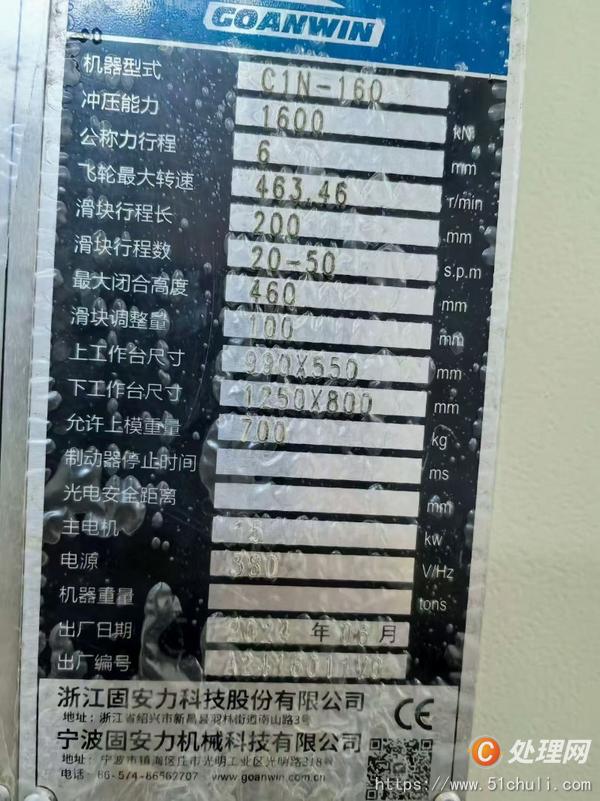 GOANWIN
机器型式 C1N-160
冲压能力 1600 kN
公称力行程 6 mm
飞轮最大转速 463.46 r/min
滑块行程长 200 mm
滑块行程数 20-50 s.p.m
最大闭合高度 460 mm
滑块调整量 100 mm
上工作台尺寸 990X550 mm
下工作台尺寸 1250X800 mm
允许上模重量 700 kg
制动器停止时间 ms
光电安全距离 mm
主电机 15 kw
电源 380 V/Hz
机器重量 tons
出厂日期 年 06 月
出厂编号
浙江固安力科技股份有限公司
地址：浙江省绍兴市新昌县羽林街道南山路3号
宁波固安力机械科技有限公司
地址：宁波市镇海区庄市光明工业区光明路218号
电话：86-574-86562707 www.goanwin.com.cn
CE
C 处理网
https://www.51chuli.com/